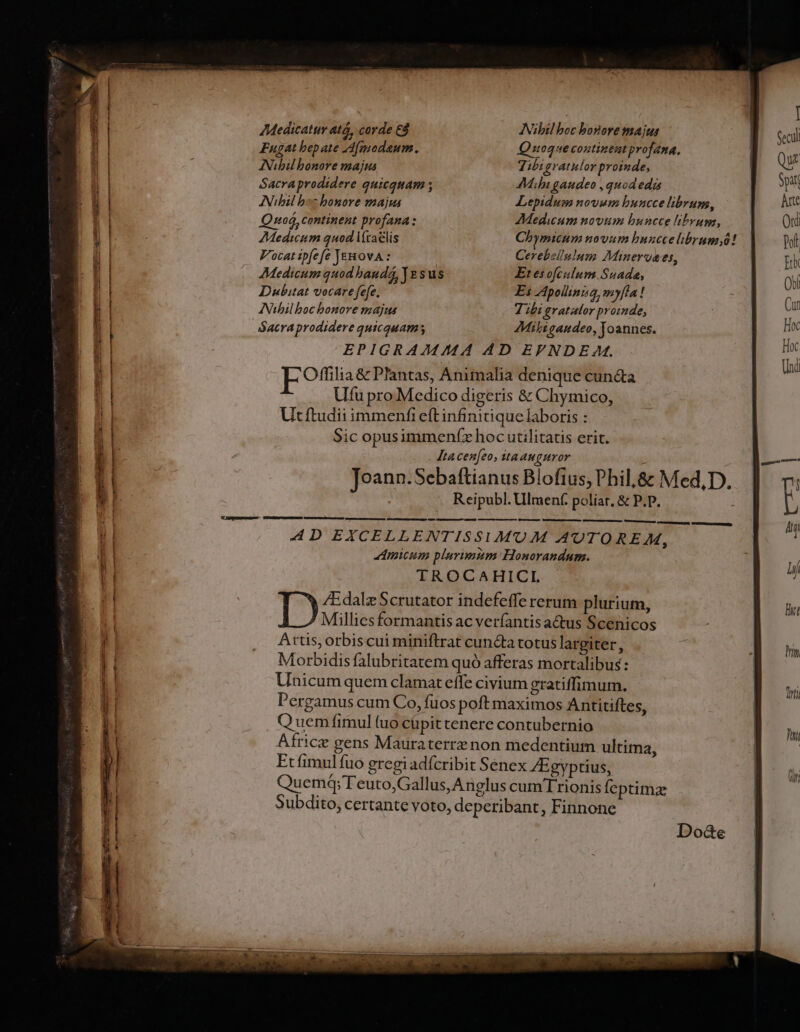 Medicatur atq́, corde &
Fugat hepate Asmodaeum.
Nihil honore majus
Sacra prodidere quicquam;
Nihil hoc honore majus
Quoq́, continent profana:
Medicum quod Israëlis
Vocat ipse se JEHOVA:
Medicum quod haudq́, JESUS
Dubitat vocare sese.
Nihil hoc honore majus
Sacra prodidere quicquam;
Nihil hoc honore majus
Quoque continent profana.
Tibi gratulor proinde,
Mihi gaudeo, quod edis
Lepidum novum huncce librum,
Medicum novum huncce librum,
Chymicum novum huncce librum; ô!
Cerebellulum Minervae es,
Et es osculum Suadae,
Es Apollinisq́, mysta!
Tibi gratulor proinde,
Mihi gaudeo, Joannes.
EPIGRAMMA AD EVNDEM.
FOssilia & Plantas, Animalia denique cuncta
Usu pro Medico digeris & Chymico,
Ut studii immensi est infinitique laboris:
Sic opus immensæ hoc utilitatis erit.
Ita censeo, ita auguror
Joann. Sebastianus Blosius, Phil. & Med. D.
Reipubl. Ulmens. poliat. & P.P.
AD EXCELLENTISSIMUM AUTOREM,
Amicum plurimùm Honorandum.
TROCAHICI.
DÆdalæ Scrutator indefesse rerum plurium,
Millies formantis ac versantis actus Scenicos
Artis, orbis cui ministrat cuncta totus largiter,
Morbidis salubritatem quò afferas mortalibus:
Unicum quem clamat esse civium gratissimum.
Pergamus cum Co, suos post maximos Antitistes,
Quem simul suo cupit tenere contubernio
Africæ gens Maura terræ non medentium ultima,
Et simul suo gregi adscribit Senex Ægyptius,
Quemq́; Teuto, Gallus, Anglus cum Trionis septimæ
Subdito, certante voto, deperibant, Finnone
Docte